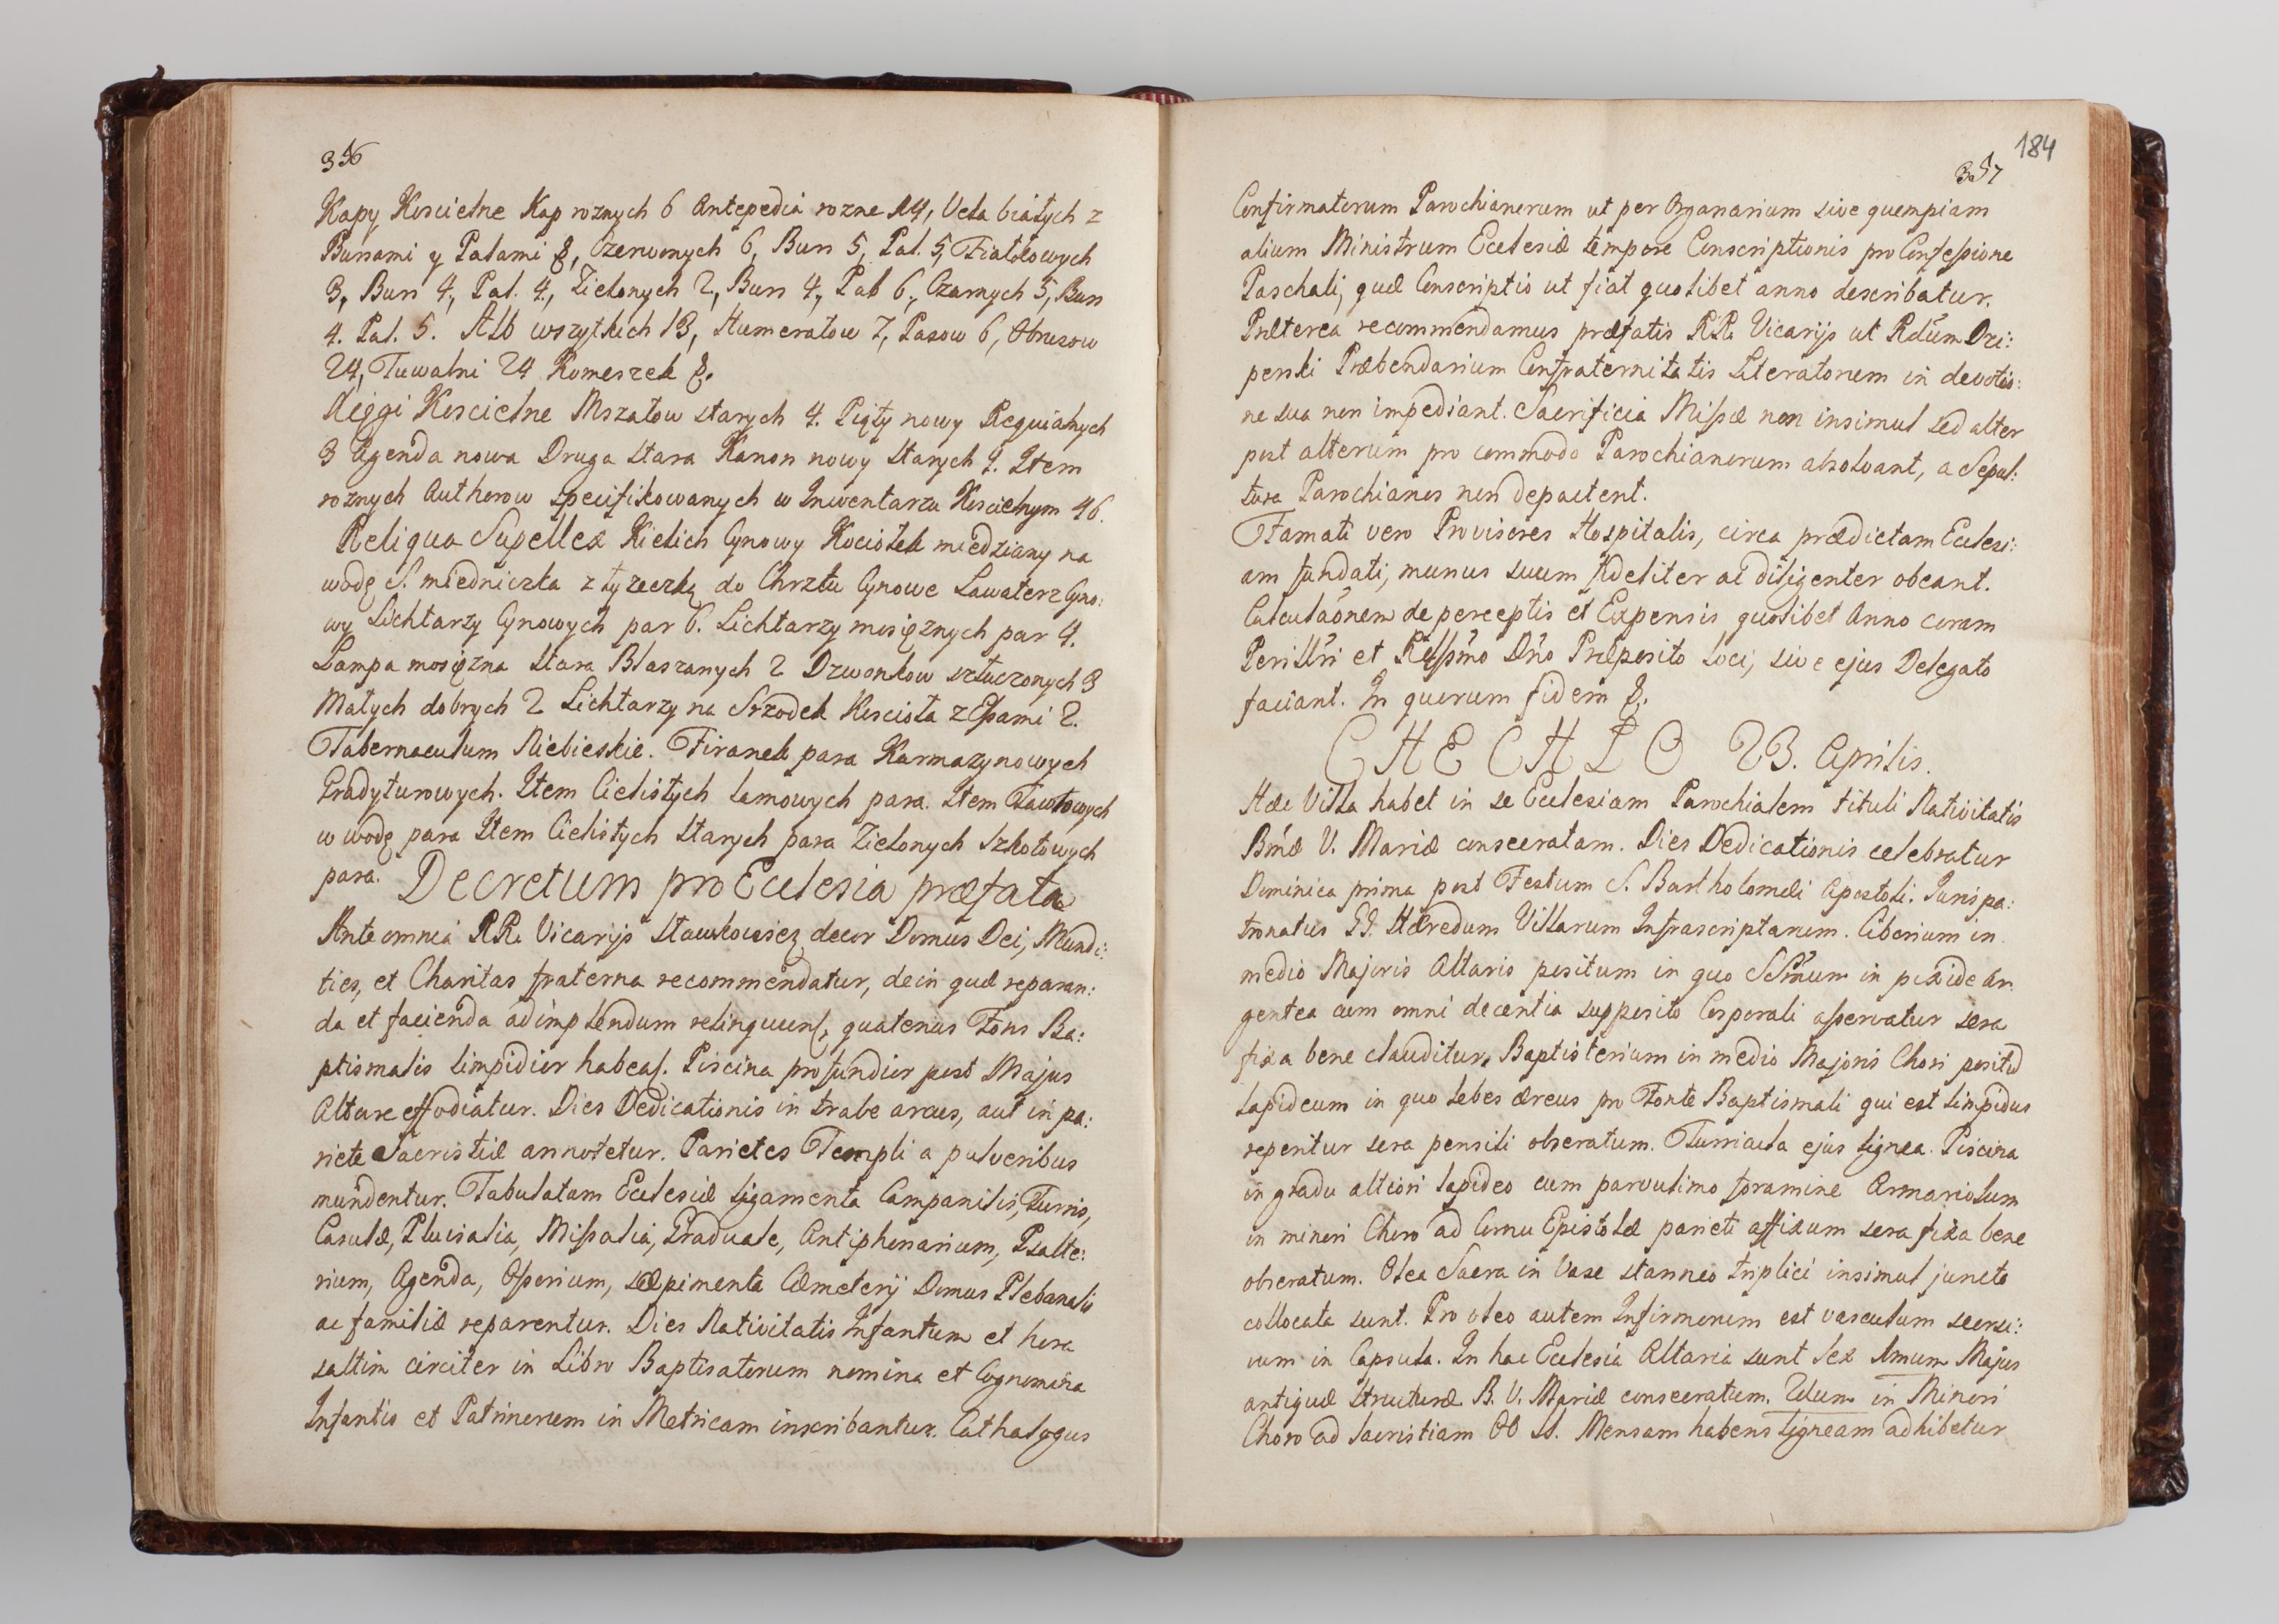 356
Kapy Koscielne Kap roznych 6 Antepedia rozne 14, Vela białych z
Bursami y Palami 8, Czerwonych 6, Burs 5, Pal. 5, Fiałkowych
3, Burs 4, Pal. 4, Zielonych 2, Burs 4, Pal 6, Czarnych 5, Burs
4. Pal. 5. Alb wszytkich 13, Humerałow 7, Pasow 6, Obrusow
24, Tuwalni 24 Komeszek 8.
Xięggi Koscielne Mszałow starych 4. Piąty nowy Requialnych
3 Agenda nowa Druga stara Kanon nowy starych 2. Item
roznych Authorow specifikowanych w Inwentarzu Koscielnym 46.
Reliqua Supellex Kielich Cynowy Kociołek miedziany na
wodę S. miedniczka z łyzeczką do Chrztu Cynowe Lawaterz Cyno:
wy Lichtarzy Cynowych par 6. Lichtarzy mosięznych par 4.
Lampa mosięzna stara Blaszanych 2 Dzwonkow stłuczonych 3
Małych dobrych 2 Lichtarzy na Srzodek Kosciola z Essami 2.
Tabernaculum Niebieskie. Firanek para Karmazynowych
Gradyturowych. Item Cielistych lamowych para. Item Tawtowych
w wodę para Item Cielistych starych para Zielonych Szkotowych
para. Decretum pro Ecclesia præfata
Ante omnia RR. Vicarijs Slawkowiens decor Domus Dei, Mundi:
ties, et Charitas fraterna recommendatur, dein quæ reparan:
da et facienda adimplendum relinquunt, quatenus Fons Ba:
ptismalis limpidior habeat. Piscina profundior post Majus
Altare effodiatur. Dies Dedicationis in trabe arcus, aut in pa:
riete Sacristiæ annotetur. Parietes Templi a pulveribus
mundentur. Tabulatam Ecclesiæ ligamenta Campanilis, Turris,
Casulæ, Pluvialia, Missalia, Graduale, Antiphonarium, Psalte:
rium, Agenda, Ossorium, sæpimenta Cæmeterij Domus Plebanalis
ac familiæ reparentur. Dies Nativitatis Infantum et hora
saltim circiter in Libro Baptisatorum nomina et Cognomina
Infantis et Patrinorum in Metricam inscribantur. Cathalogus
184
357
Confirmatorum Parochianorum ut per Organarium sive quempiam
alium Ministrum Ecclesiæ tempore Conscriptionis pro Confessione
Paschali, quæ Conscriptio ut fiat quolibet anno describatur.
Præterea recommendamus præfatis RR. Vicarijs ut Rdum Dzi:
perski Præbendarium Confraternitatis Literatorum in devotio:
ne sua non impediant. Sacrificia Missæ non insimul sed alter
post alterum pro commodo Parochianorum absolvant, a Sepul:
tura Parochianos non depactent.
Famati vero Provisores Hospitalis, circa prædictam Ecclesi:
am fundati, munus suum fideliter ac diligenter obeant.
Calculaõnem de perceptis et Expensis quolibet Anno coram
Perillri et Rdssmo Dño Præposito loci, sive ejus Delegato
faciant. In quorum fidem &.
CHECHŁO 23. Aprilis.
Hæc Villa habet in se Ecclesiam Parochialem tituli Nativitatis
Bmæ V. Mariæ consecratam. Dies Dedicationis celebratur
Dominica prima post Festum S. Bartholomæi Apostoli. Juris pa:
tronatus GG. Hæredum Villarum Infrascriptarum. Ciborium in
medio Majoris Altaris positum in quo SSmum in pixide ar
gentea cum omni decentia supposito Corporali asservatur sera
fixa bene clauditur. Baptisterium in medio Majoris Chori positũ
lapideum in quo lebes æreus pro Fonte Baptismali qui est limpidus
reperitur sera pensili obseratum. Turricula ejus lignea. Piscina
in gradu altiori lapideo cum parvulimo foramine Armariolum
in minori Choro ad Cornu Epistolæ parieti affixum sera fixa bene
obseratum. Olea Sacra in Vase stanneo triplici insimul juncto
collocata sunt. Pro oleo autem Infirmorum est vasculum seorsi:
vum in Capsula. In hac Ecclesia Altaria sunt Sex 1mum Majus
antiquæ structuræ B. V. Mariæ consecratum. 2dum in Minori
Choro ad Sacristiam OO SS. Mensam habens ligneam adhibetur